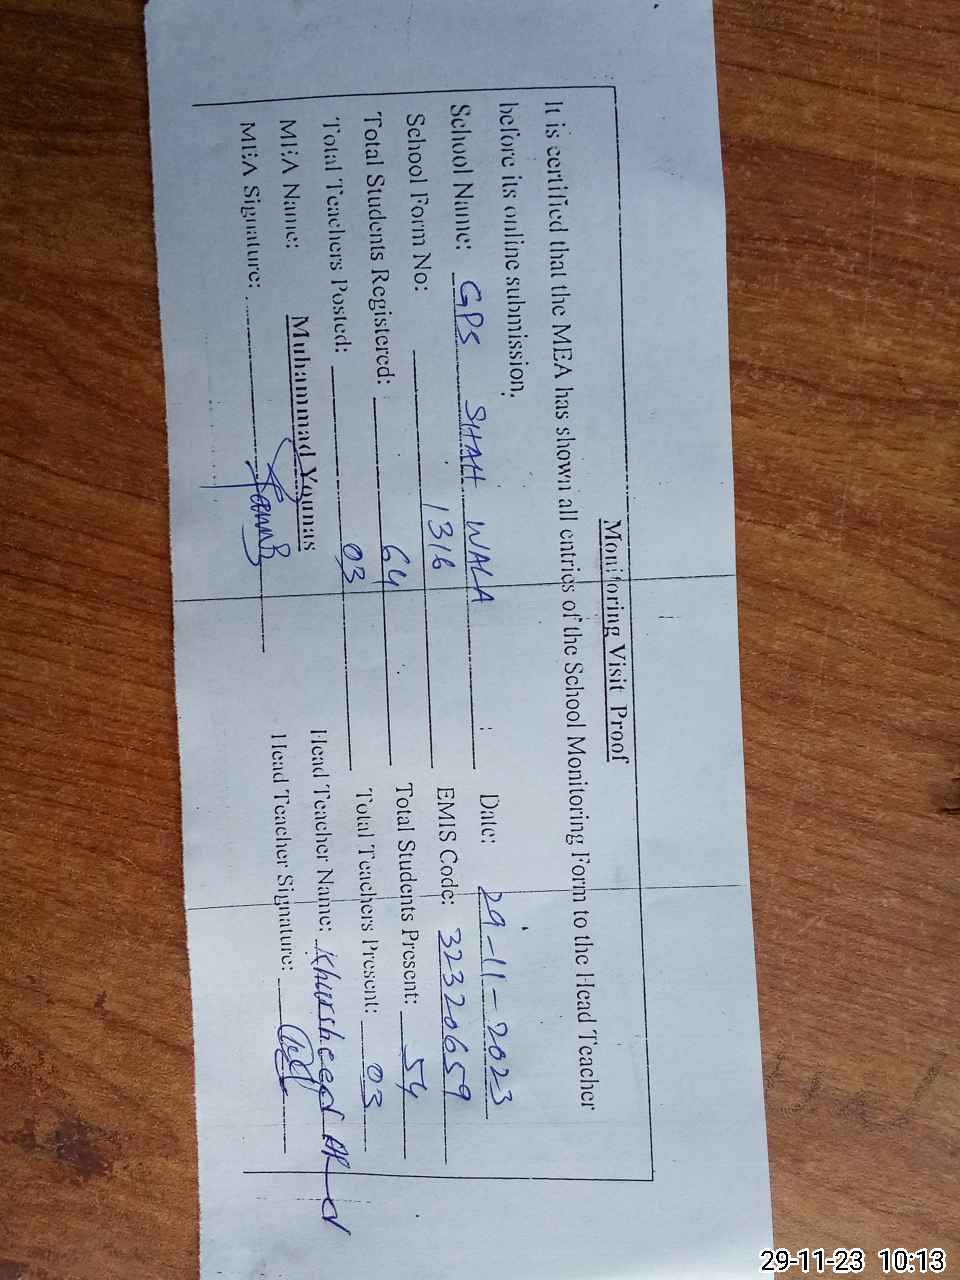 Monitoring Visit Proof
It is certified that the MEA has shown all entries of the School Monitoring Form to the Head Teacher
before its online submission.
School Name: GPS SHAH WALA Date: 29-11-2023
School Form No: 1316 EMIS Code: 32320659
Total Students Registered: 64 Total Students Present: 54
Total Teachers Posted: 03 Total Teachers Present: 03
MEA Name: Muhammad Younas Head Teacher Name: Khursheed
MEA Signature: Head Teacher Signature:
29-11-23 10:13